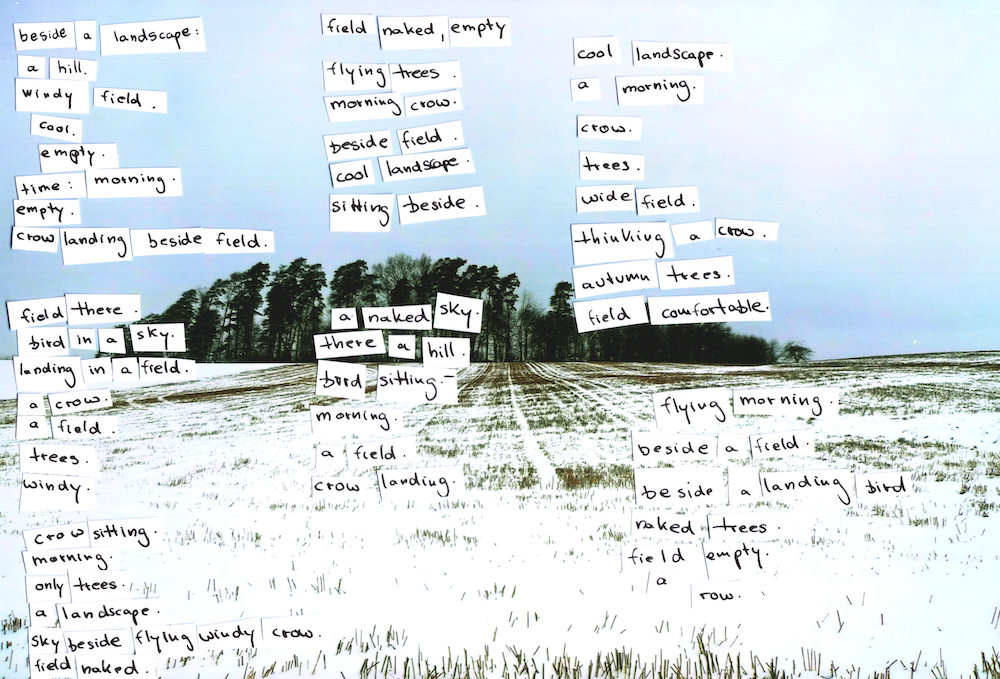 beside a landscape:
a hill.
windy field.
cool.
empty.
time: morning.
empty.
crow landing beside field.
field there.
bird in a sky.
landing in a field.
a crow.
a field.
trees.
windy.
crow sitting.
morning.
only trees.
a landscape.
sky beside flying windy crow.
field naked.
field naked, empty
flying trees.
morning crow.
beside field.
cool landscape.
sitting beside.
a naked sky.
there a hill.
bird sitting.-
morning.
a field.
crow landing.
cool landscape.
a morning.
crow.
trees.
wide field.
thinking a crow.
autumn trees.
field comfortable.
flying morning.
beside a field.
beside a landing bird
naked trees.
field empty.
a
row.